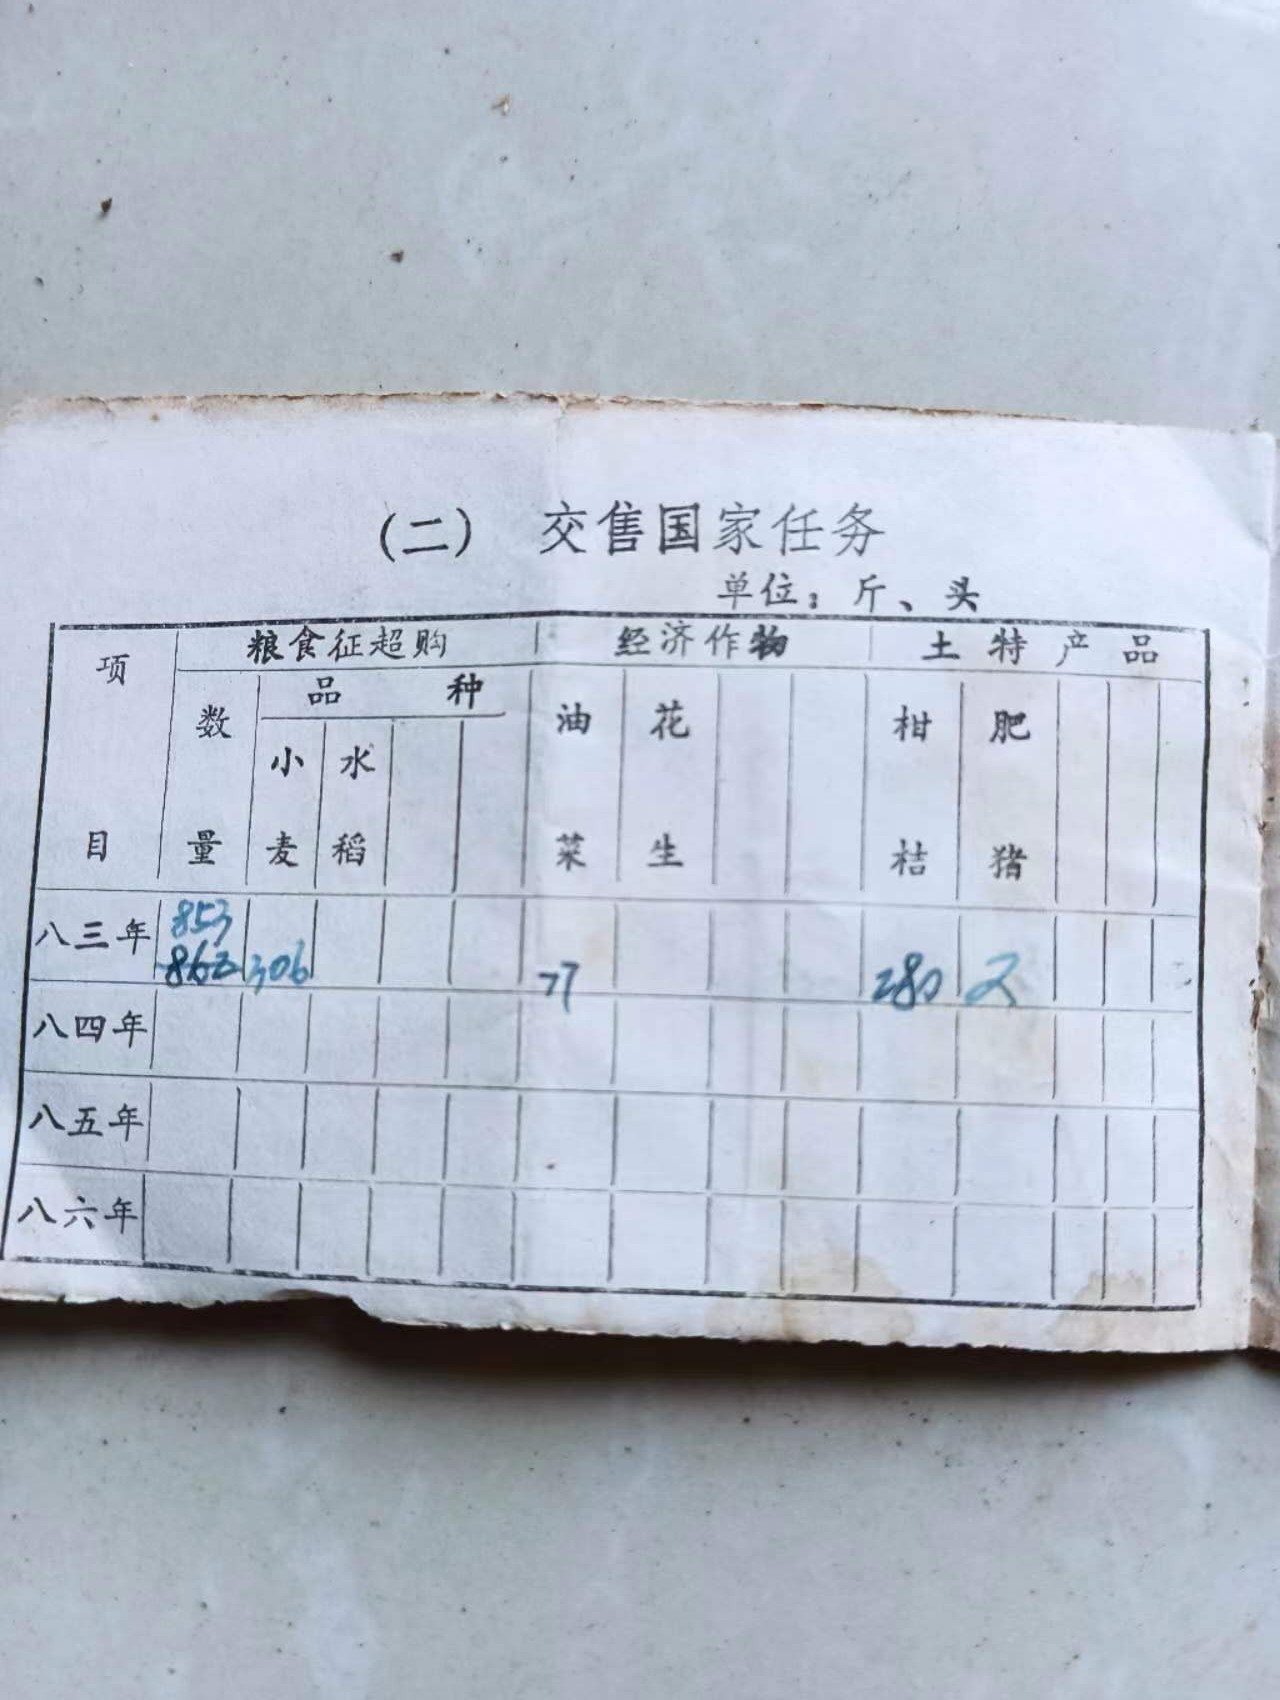 （二） 交售国家任务
单位：斤、头
项目 粮食征超购 经济作物 土特产品
数量 品种 油菜 花生 柑桔 肥猪
小麦 水稻
八三年 853
306 77 280 2
八四年
八五年
八六年